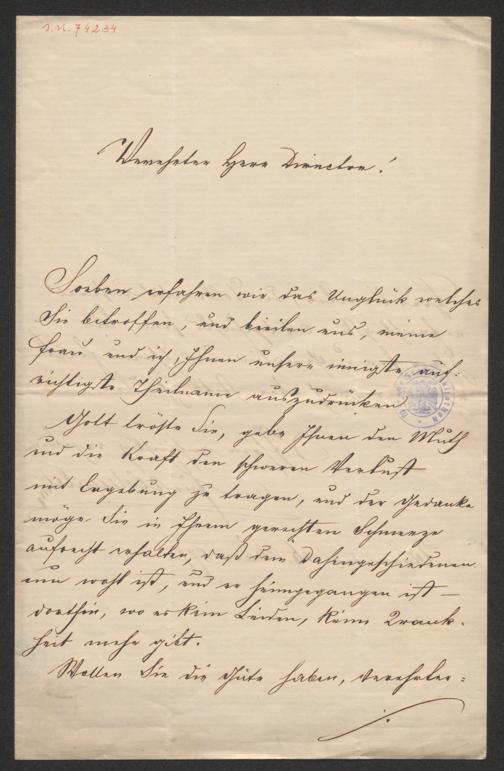 J. N. 74234
Verehrter Herr Director!
Soeben erfahren wir das Unglück welches
Sie betroffen, und beeilen uns, meine
Frau und ich, Ihnen unsere innigste, auf-
richtigste Theilname auszudrücken.
Gott tröste Sie, gebe Ihnen den Muth
und die Kraft den schweren Verlust
mit Ergebung zu tragen, und der Gedanke
möge Sie in Ihrem gerechten Schmerze
aufrecht erhalten, daß dem Dahingeschiedenen
nun wohl ist, und er heimgegangen ist –
dorthin, wo es kein Leiden, keine Krank-
heit mehr gibt.
Wollen Sie die Güte haben, verehrter=
./.